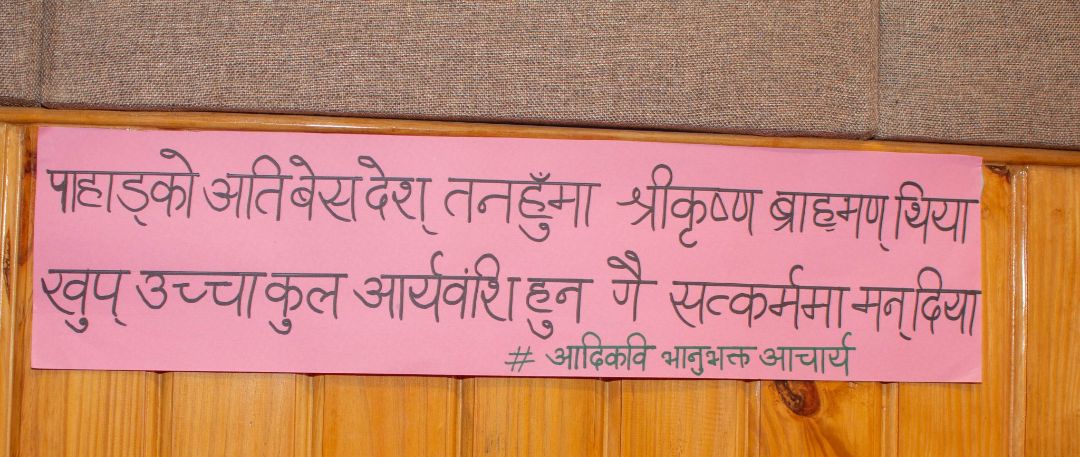 पाहाड्को अति बेस देश् तनहुँमा श्रीकृष्ण ब्राह्मण् थिया
खुप् उच्चा कुल आर्यवंशि हुन गै सत्कर्ममा मन् दिया
# आदिकवि भानुभक्त आचार्य